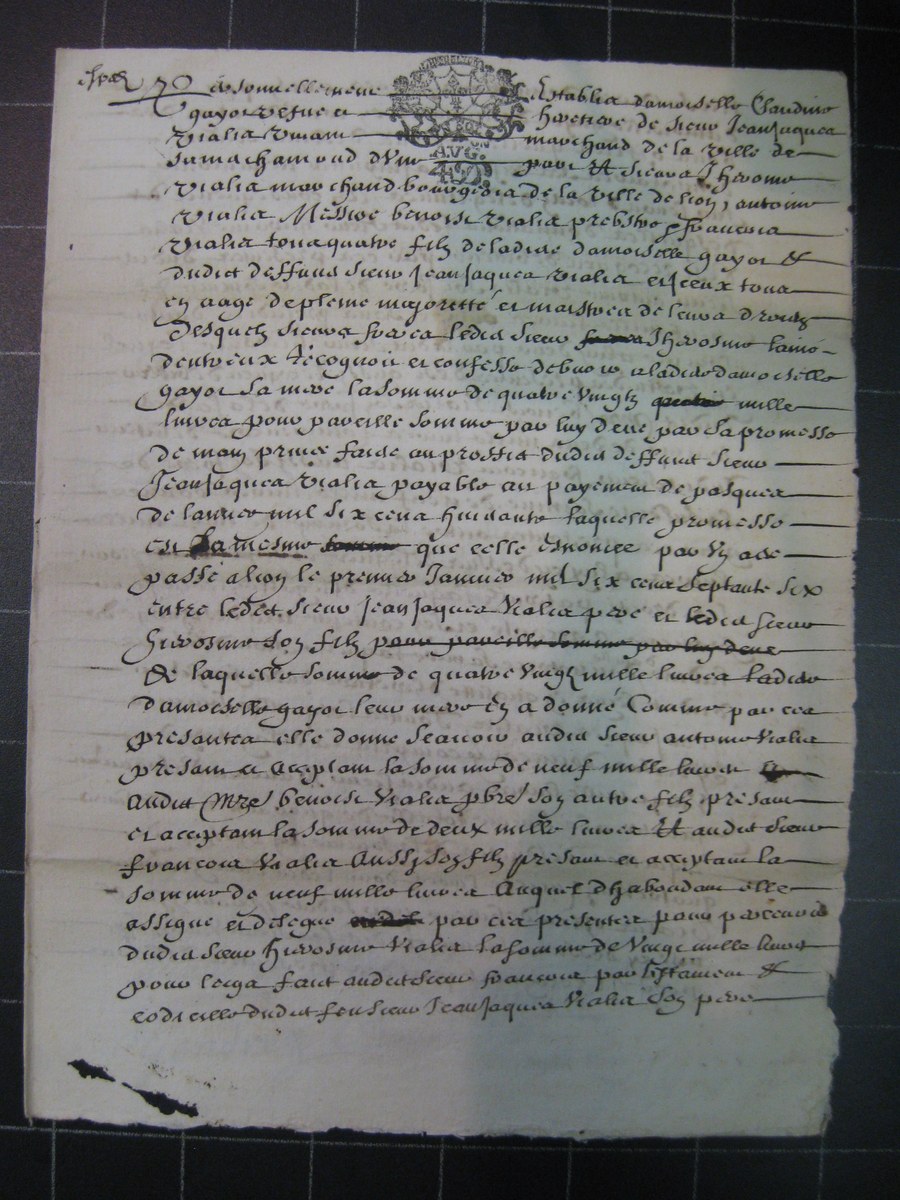 Personnellement Establie damoiselle Claudine
gayot vefue et heretiere de sieur Jean Jaques
Vialis vivant marchand de la ville de
Sainct chamond d'une part Et sieurs Jherosme
Vialis marchand bourgeois de la ville de lion, antoine
Vialis Messire benoist Vialis prebstre & francois
Vialis tous quatre filz de ladite damoiselle gayot &
dudict deffunct sieur Jean Jaques Vialis et Iceux tous
en aage de pleine majoretté et maistres de leurs droitz
desquelz sieurs freres ledit sieur Jherosme laîné
dentreux Recognoit et confesse debvoir a ladite damoiselle
gayot sa mere la somme de quatre vingtz mille
livres pour pareille somme par luy deue par sa promesse
de main privée faite au proffit dudit deffunct sieur
Jean Jaques Vialis payable au payement de pasques
de lannee mil six cens huictante laquelle promesse
est la mesme que celle enoncee par un acte
passé a lion le premier Janvier mil six cent septante six
entre ledict sieur Jean Jaques Vialis pere et ledit sieur
hierosme son filz pour pareille somme par luy deue
De laquelle somme de quatre vingtz mille livres ladite
damoiselle gayot leur mere en a donné Comme par ces
presantes elle donne audit sieur antoine Vialis
presant et acceptant la somme de neuf mille livres
audict Mre benoist Vialis pbre son autre filz presant
et acceptant la somme de deux mille livres Et audit sieur
francois Vialis Aussy son filz presant et acceptant la
somme de neuf mille livres Auquel d'habondant elle
assigne et delegue par ces presentes pour percevoir
dudit sieur hierosme Vialis la somme de vingt mille livres
pour legat faict audict sieur francois par testament &
codicille dudict feu sieur Jean Jaques Vialis son pere